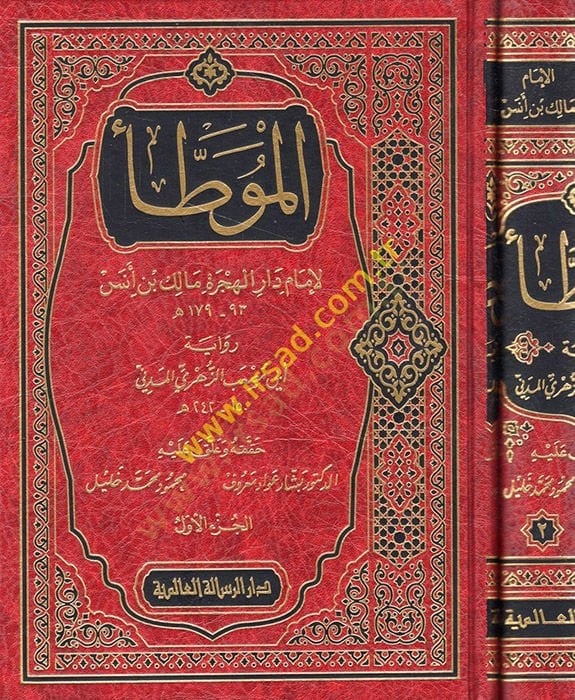 الموطأ
لإمام دار الهجرة مالك بن أنس
٩٣ - ١٧٩ هـ
رواية
الزهري المدني
٢٤٢ هـ
حققه وعلق عليه
الدكتور بشار عواد معروف محمود محمد خليل
الجزء الأول
دار الرسالة العالمية
www.irsad.com.tr
الإمام
مالك بن أنس
طأ
الزهري المدني
عليه
محمود محمد خليل
٢
العالمية